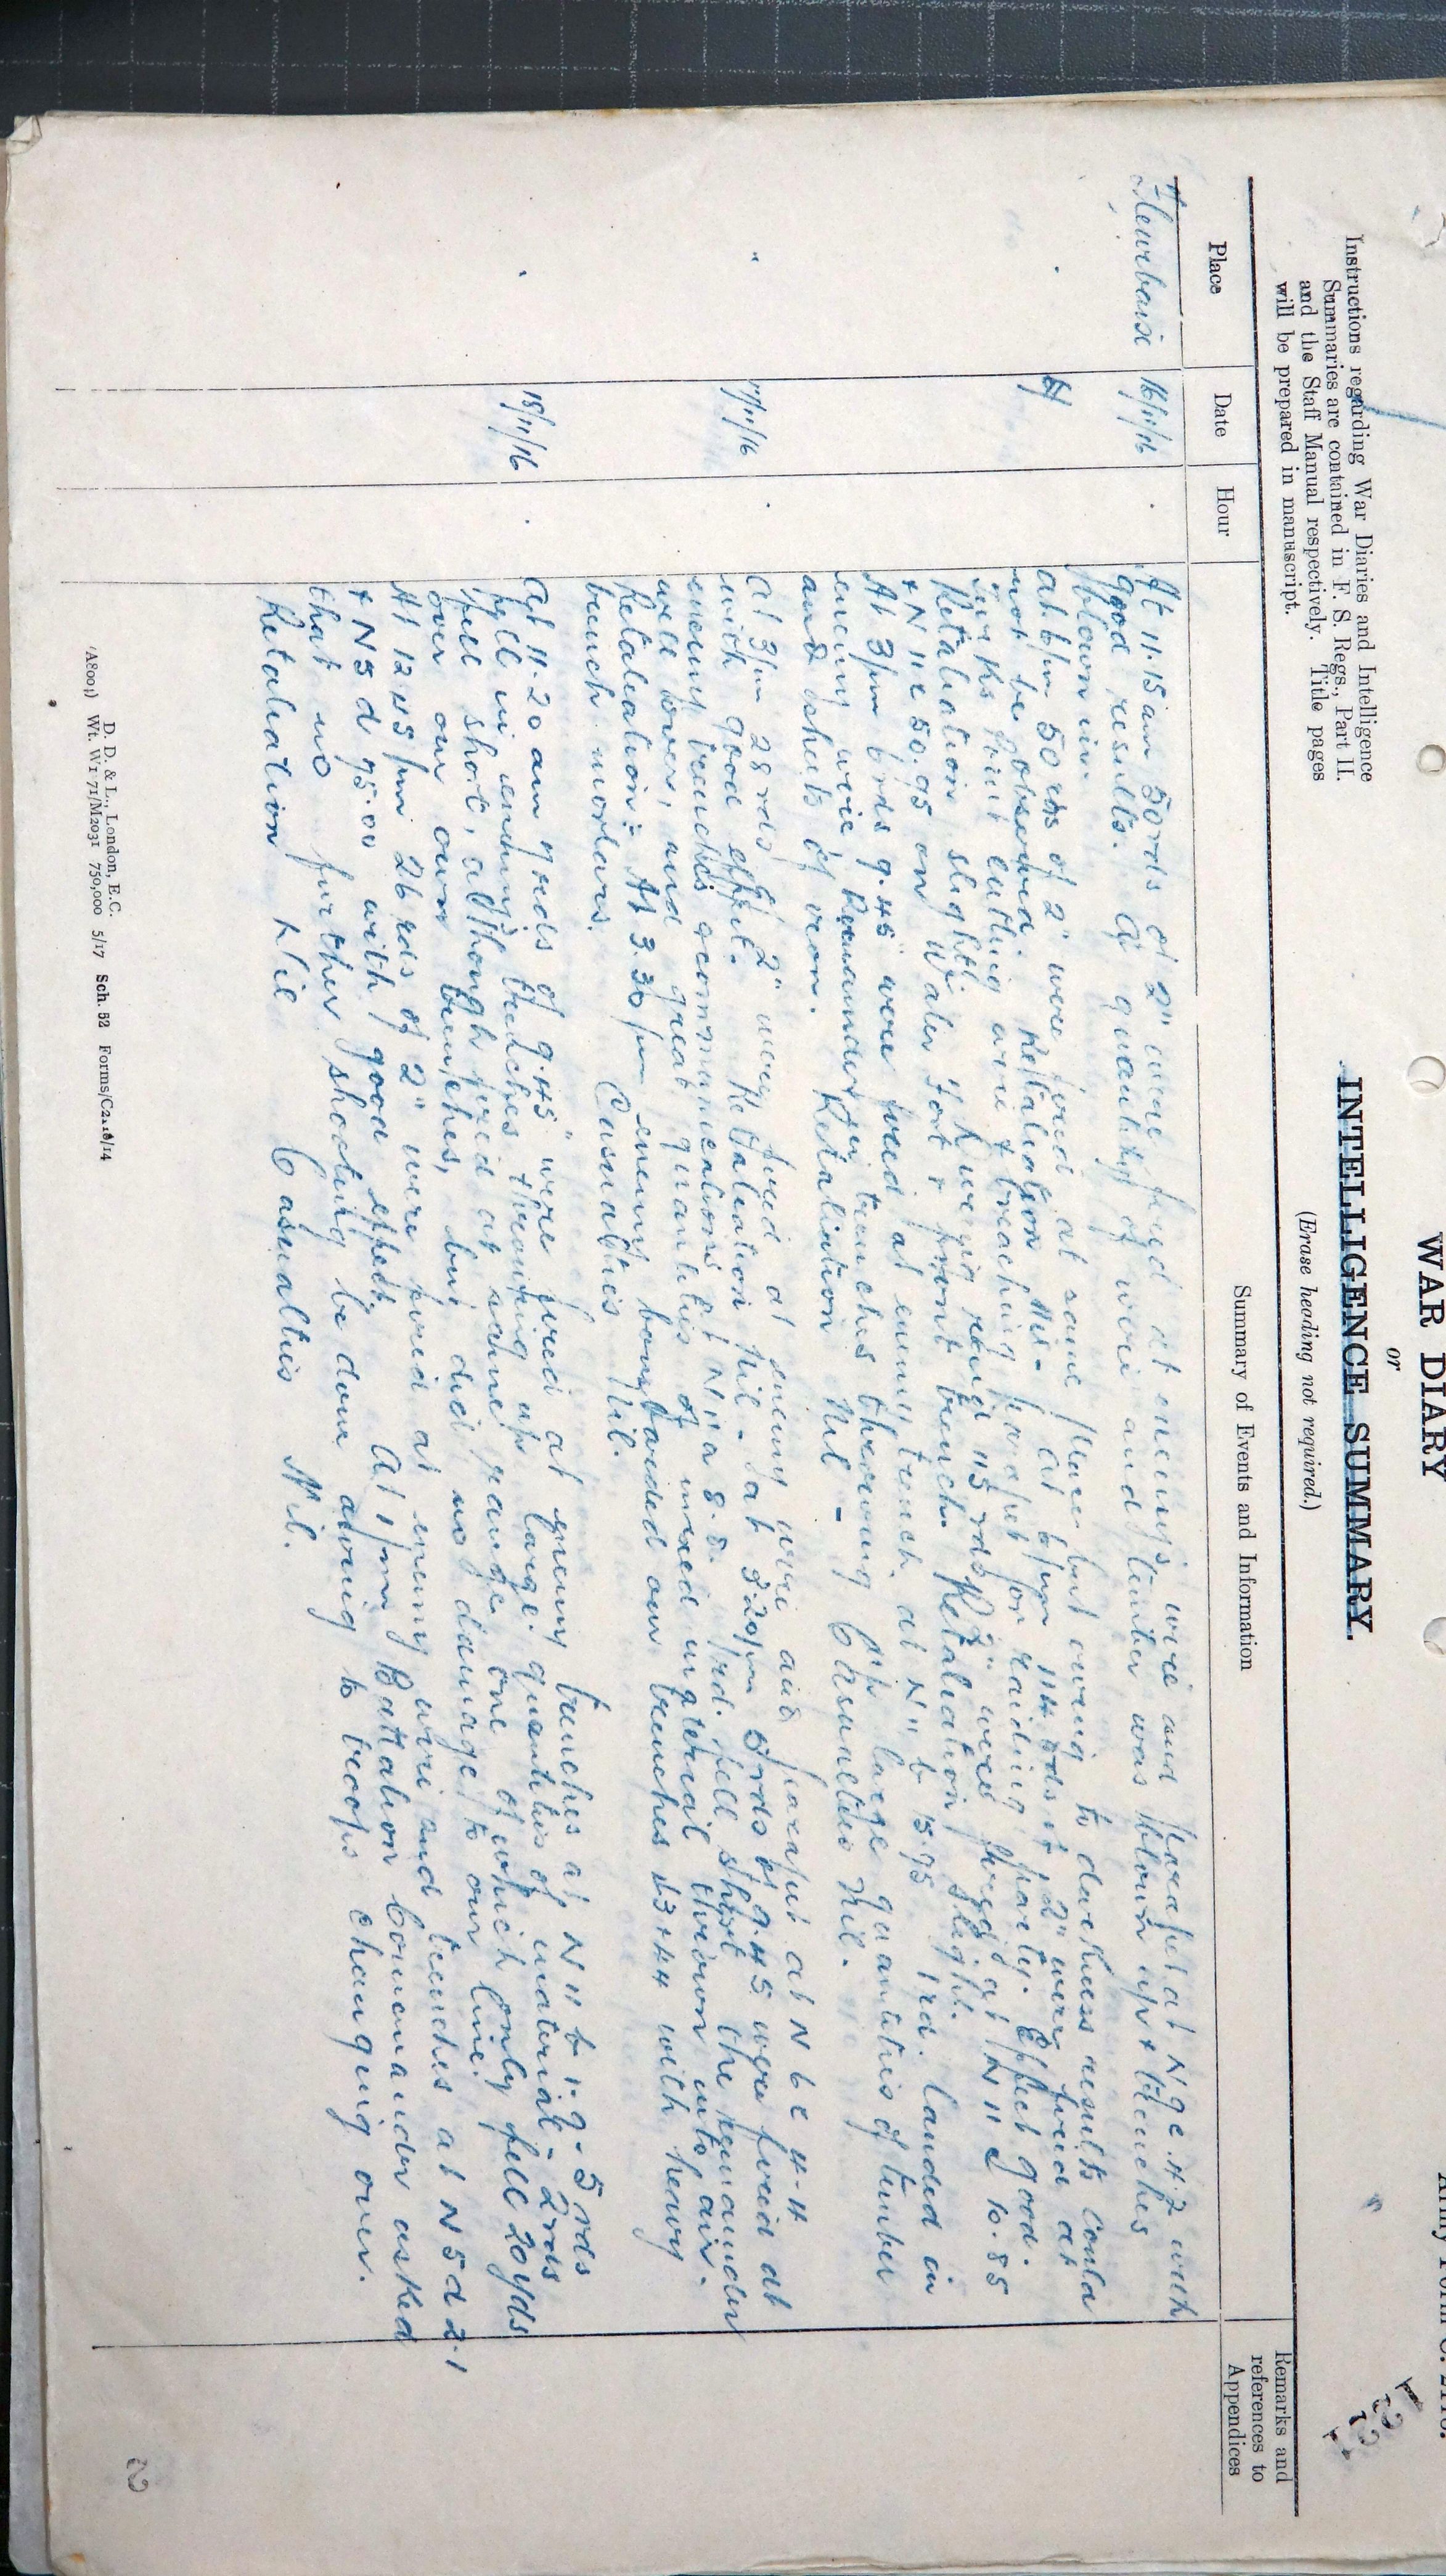 Army Form C. 2118.
WAR DIARY
or
INTELLIGENCE SUMMARY.
(Erase heading not required.)
Instructions regarding War Diaries and Intelligence
Summaries are contained in F. S. Regs., Part II.
and the Staff Manual respectively. Title pages
will be prepared in manuscript.
Place
Date
Hour
Summary of Events and Information
Remarks and
references to
Appendices
Fleurbaise 16/11/16 At 11.15 am 50 rds of 2" were fired at enemys wire and parapet at N 9 c .4.7 with
good results. A quantity of wire and timber was blown up & trenches
blown in.
at 6 pm 50 rds of 2" were fired at same place but owing to darkness results could
not be observed. Retaliation Nil - At 6 pm 114 rds of 2" were fired at
Turks Point cutting wire & breaching parapet for raiding party. Effect good.
Retaliation slight. During raid 115 rds 2" were fired at N 11 c 10.85
& N 11 c 50.95 on Water Fort & front trench. Retaliation slight.
At 3 pm 6 rds 9.45" were fired at enemy trench at N 11 b 15.95 1 rd. landed in
enemy wire Remainder in trenches throwing up large quantities of timber
and sheets of iron. Retaliation Nil - Casualties Nil.
" 17/11/16 At 3 pm 28 rds of 2" were fired at enemy wire and parapet at N 6 c 4-4
with good effect. Retaliation Nil - at 3.20 pm 5 rds of 9.45 were fired at
enemy trenches & communications at N 11 a 8.8. 1 rd. fell short the remainder
well over, and great quantities of mixed material thrown into air.
Retaliation:- At 3.30 pm enemy bombarded our trenches 43 & 44 with heavy
trench mortars. Casualties Nil.
" 18/11/16 At 11.20 am 7 rds of 9.45" were fired at enemy trenches at N 11 b 1.9 - 5 rds
fell in enemys trenches throwing up large quantities of material - 2 rds
fell short, although fired at same range one of which only fell 20 yds
over our own trenches, but did no damage to our line.
At 12.45 pm 26 rds of 2" were fired at enemy wire and trenches at N 5 d 2.1
& N 5 d 95.00 with good effect. At 1 pm Battalion Commander asked
that no further shooting be done owing to troops changing over.
Retaliation Nil Casualties Nil.
D. D. & L., London, E.C.
(A8001) Wt. W1 71/M2031 750,000 5/17 Sch. 52 Forms/C2118/14
2